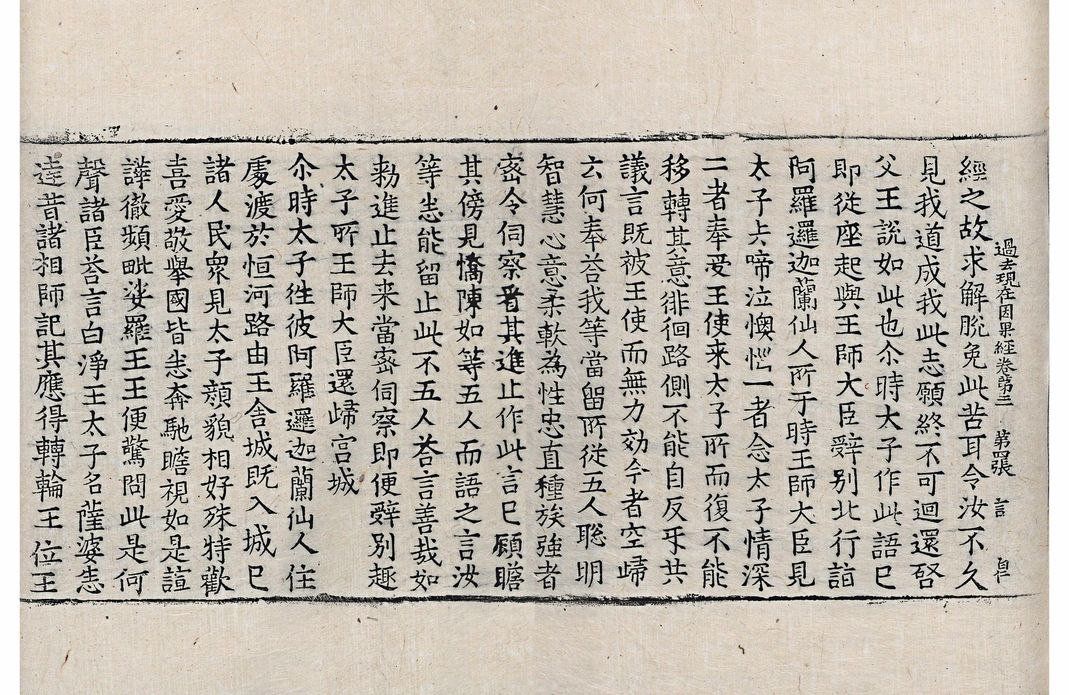 過去現在因果經卷第三 第四張 言
經之故求解脫免此苦耳令汝不久
見我道成我此志願終不可迴還啓
父王說如此也尒時大子作此語已
即從座起與王師大臣辝別北行詣
阿羅邏迦蘭仙人所于時王師大臣見
太子去啼泣懊惱一者念太子情深
二者奉受王使来太子所而復不能
移轉其意徘徊路側不能自反乎共
議言既被王使而無力効今者空歸
云何奉荅我等當留所從五人聡明
智慧心意柔軟為性忠直種族強者
密令伺察看其進止作此言已顧瞻
其傍見憍陳如等五人而語之言汝
等悉能留止此不五人荅言善哉如
勑進止去来當密伺察即便辝別趣
太子所王師大臣還歸宫城
尒時太子徃彼阿羅邏迦蘭仙人住
處渡於恒河路由王舍城既入城已
諸人民衆見太子顔貌相好殊特歡
喜愛敬舉國皆悉奔馳瞻視如是諠
譁徹頻毗娑羅王王便驚問此是何
聲諸臣荅言白淨王太子名薩婆悉
達昔諸相師記其應得轉輪王位王